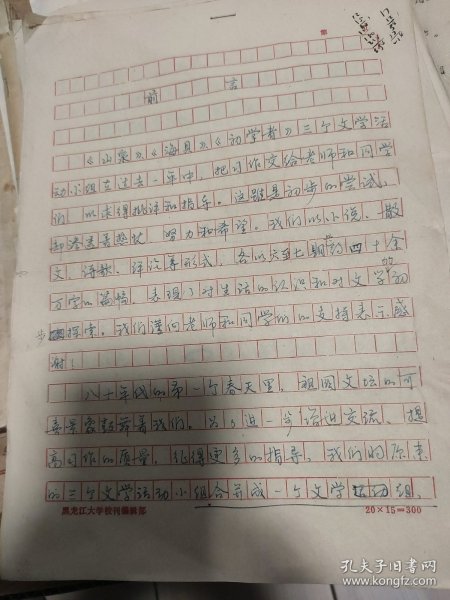 前 言
《山泉》《海贝》《初学者》三个文学活
动小组在过去一年中，把习作交给老师和同学
们，以求得批评和指导。这虽是初步的尝试，
却渗透着热忱、努力和希望。我们以小说、散
文、诗歌、评论等形式，各以六至七期约四十余
万字的篇幅，表现了对生活的认识和对文学的初
步探索。我们谨向老师和同学们的支持表示感
谢！
八十年代的第一个春天里，祖国文坛的可
喜景象鼓舞着我们。为了进一步活跃交流、提
高习作的质量，征得更多的指导，我们的原来
的三个文学活动小组合并成一个文学活动组，
黑龙江大学校刊编辑部
20×15=300
孔夫子旧书网
www.kongfz.com